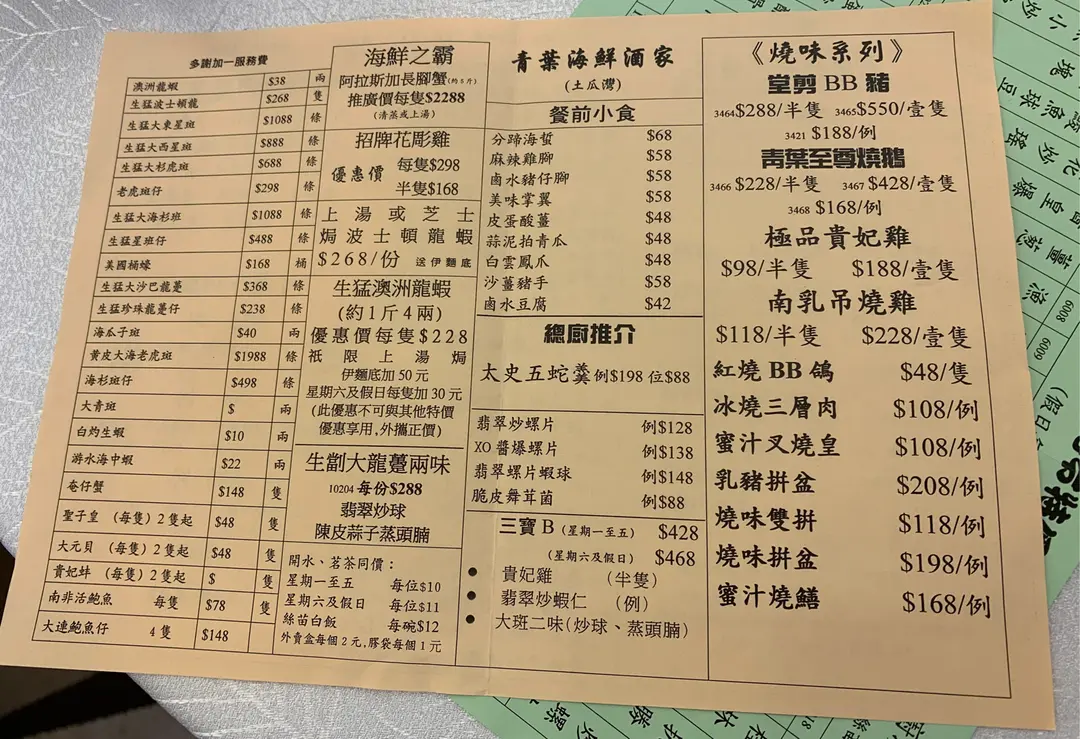 多謝加一服務費
澳洲龍蝦 $38 兩
生猛波士頓龍 $268 隻
生猛大東星斑 $1088 條
生猛大西星斑 $888 條
生猛大杉虎斑 $688 條
老虎斑仔 $298 條
生猛大海杉斑 $1088 條
生猛星斑仔 $488 條
美國桶蠔 $168 桶
生猛大沙巴龍躉 $368 條
生猛珍珠龍躉仔 $238 條
海瓜子斑 $40 兩
黃皮大海老虎斑 $1988 條
海杉斑仔 $498 條
大青斑 $ 兩
白灼生蝦 $10 兩
游水海中蝦 $22 兩
奄仔蟹 $148 隻
聖子皇 (每隻) 2隻起 $48 隻
大元貝 (每隻) 2隻起 $48 隻
貴妃蚌 (每隻) 2隻起 $ 隻
南非活鮑魚 每隻 $78 隻
大連鮑魚仔 4隻 $148
海鮮之霸
阿拉斯加長腳蟹(約5斤)
推廣價每隻$2288
(清蒸或上湯)
招牌花彫雞
優惠價 每隻$298
半隻$168
上湯或芝士
焗波士頓龍蝦
$268/份 送伊麵底
生猛澳洲龍蝦
(約1斤4兩)
優惠價每隻$228
祇限上湯焗
伊麵底加50元
星期六及假日每隻加30元
(此優惠不可與其他特價
優惠享用,外攜正價)
生劏大龍躉兩味
10204 每份$288
翡翠炒球
陳皮蒜子蒸頭腩
開水、茗茶同價：
星期一至五 每位$10
星期六及假日 每位$11
絲苗白飯 每碗$12
外賣盒每個2元,膠袋每個1元
青葉海鮮酒家
(土瓜灣)
餐前小食
分蹄海蜇 $68
麻辣雞腳 $58
鹵水豬仔腳 $58
美味掌翼 $58
皮蛋酸薑 $48
蒜泥拍青瓜 $48
白雲鳳爪 $48
沙薑豬手 $58
鹵水豆腐 $42
總廚推介
太史五蛇羹 例$198 位$88
翡翠炒螺片 例$128
XO醬爆螺片 例$138
翡翠螺片蝦球 例$148
脆皮舞茸菌 例$88
三寶B (星期一至五) $428
(星期六及假日) $468
● 貴妃雞 (半隻)
● 翡翠炒蝦仁 (例)
● 大班二味(炒球、蒸頭腩)
《燒味系列》
堂剪BB豬
3464 $288/半隻 3465 $550/壹隻
3421 $188/例
青葉至尊燒鵝
3466 $228/半隻 3467 $428/壹隻
3468 $168/例
極品貴妃雞
$98/半隻 $188/壹隻
南乳吊燒雞
$118/半隻 $228/壹隻
紅燒BB鴿 $48/隻
冰燒三層肉 $108/例
蜜汁叉燒皇 $108/例
乳豬拼盆 $208/例
燒味雙拼 $118/例
燒味拼盆 $198/例
蜜汁燒鱔 $168/例
6008
6009